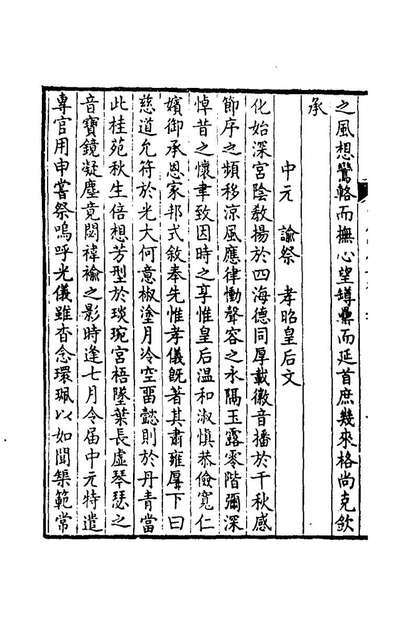 之風想鸞輅而撫心望罇鼎而延首庶幾來格尚克欽
承
中元　諭祭　孝昭皇后文
化始深宮陰教揚於四海德同厚載徽音播於千秋感
節序之頻移涼風應律慟聲容之永隔玉露零階彌深
悼昔之懷聿致因時之享惟皇后溫和淑慎恭儉寬仁
嬪御承恩家邦式敘奉先惟孝儀旣著其肅雍厚下曰
慈道允符於光大何意椒塗月冷空留懿則於丹青當
此桂苑秋生倍想芳型於琰琬宮梧墜葉長虛琴瑟之
音寶鏡凝塵竟閟褘褕之影時逢七月令屆中元特遣
專官用申嘗祭嗚呼光儀雖杳念環珮以如聞榘範常